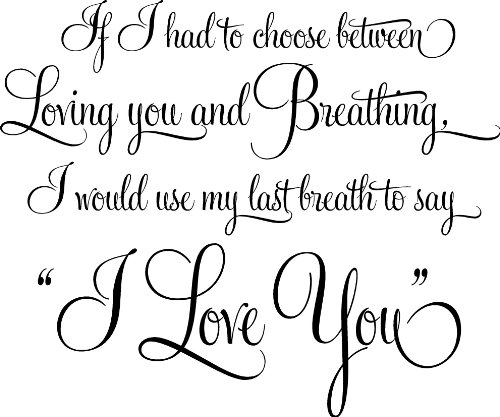 If I had to choose between
Loving you and Breathing,
I would use my last breath to say
“I Love You”